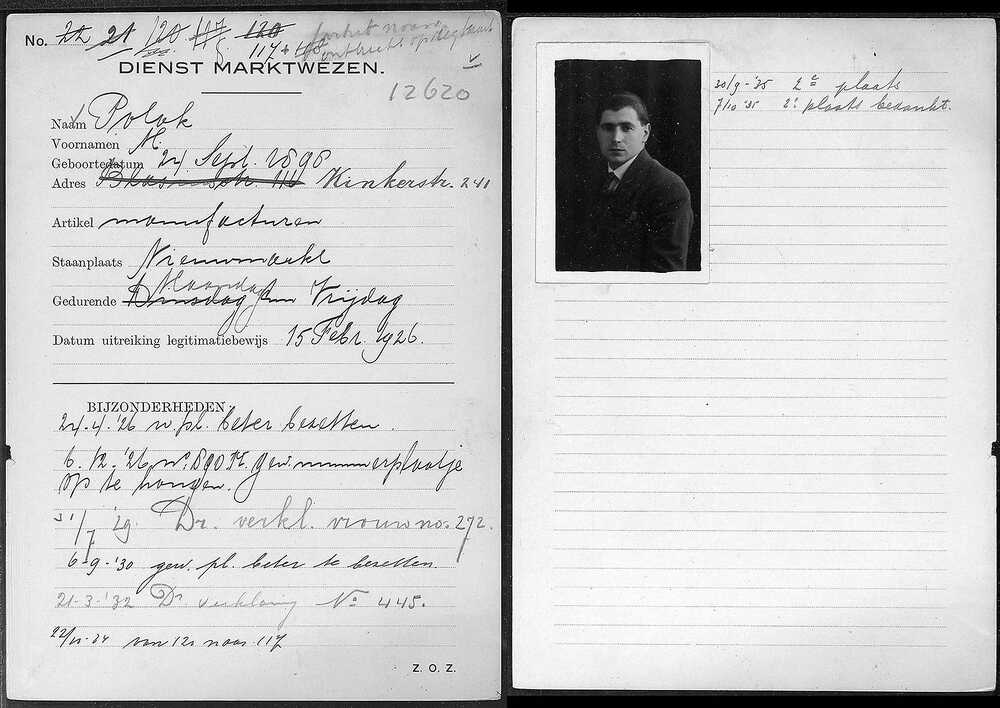 No. 22 21 120 117 120
117 + 118
DIENST MARKTWEZEN.
12620
Naam Polak
Voornamen M.
Geboortedatum 24 Sept. 1898
Adres 111 Kinkerstr. 241
Artikel manufacturen
Staanplaats Nieuwmarkt
Maandag
Gedurende Dinsdag en Vrijdag
Datum uitreiking legitimatiebewijs 15 Febr. 1926.
BIJZONDERHEDEN:
24-4-'26 w. pl. beter bezetten.
6-12-'26 no. 890 gew. nummerplaatje
op te hangen.
31/7 '29 Dr. verkl. vrouw no. 272.
6-9-'30 gew. pl. beter te bezetten.
21-3-'32 Dr. verklaring No 445.
22/11-34 van 121 naar 117
Z. O. Z.
30/9-'35 2e plaats
7/10 '35 2e plaats bedankt.